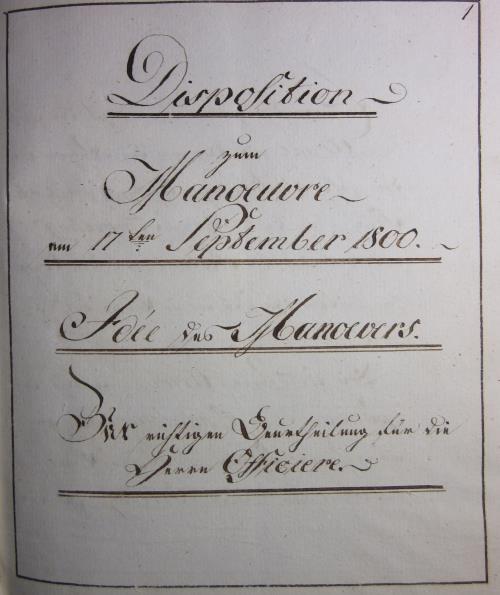 1
Disposition
zum
Manoeuvre
am 17ten September 1800.
Idée des Manoevers.
Zur richtigen Beurtheilung für die
Herrn Officiere.